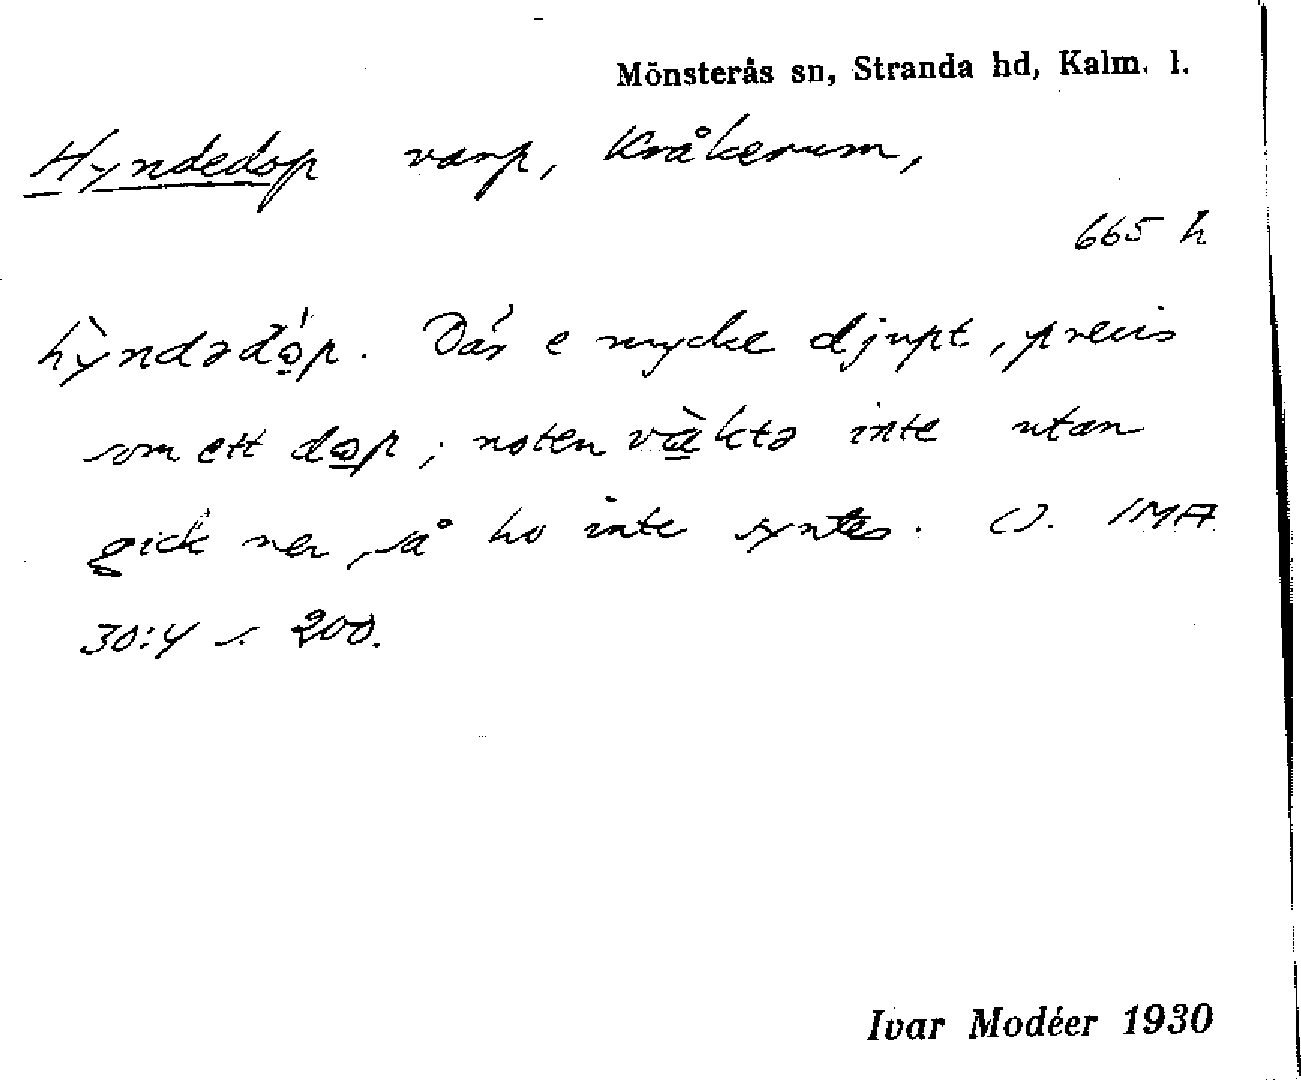 Mönsterås sn, Stranda hd, Kalm. l.
Hyndedop varp, Kråkerum,
665 h
hỳndədóp. Där e mycke djupt, precis
som ett dop; noten vàktə inte utan
gick ner, så ho inte syntes. IMA
30:4 s. 200.
Ivar Modéer 1930